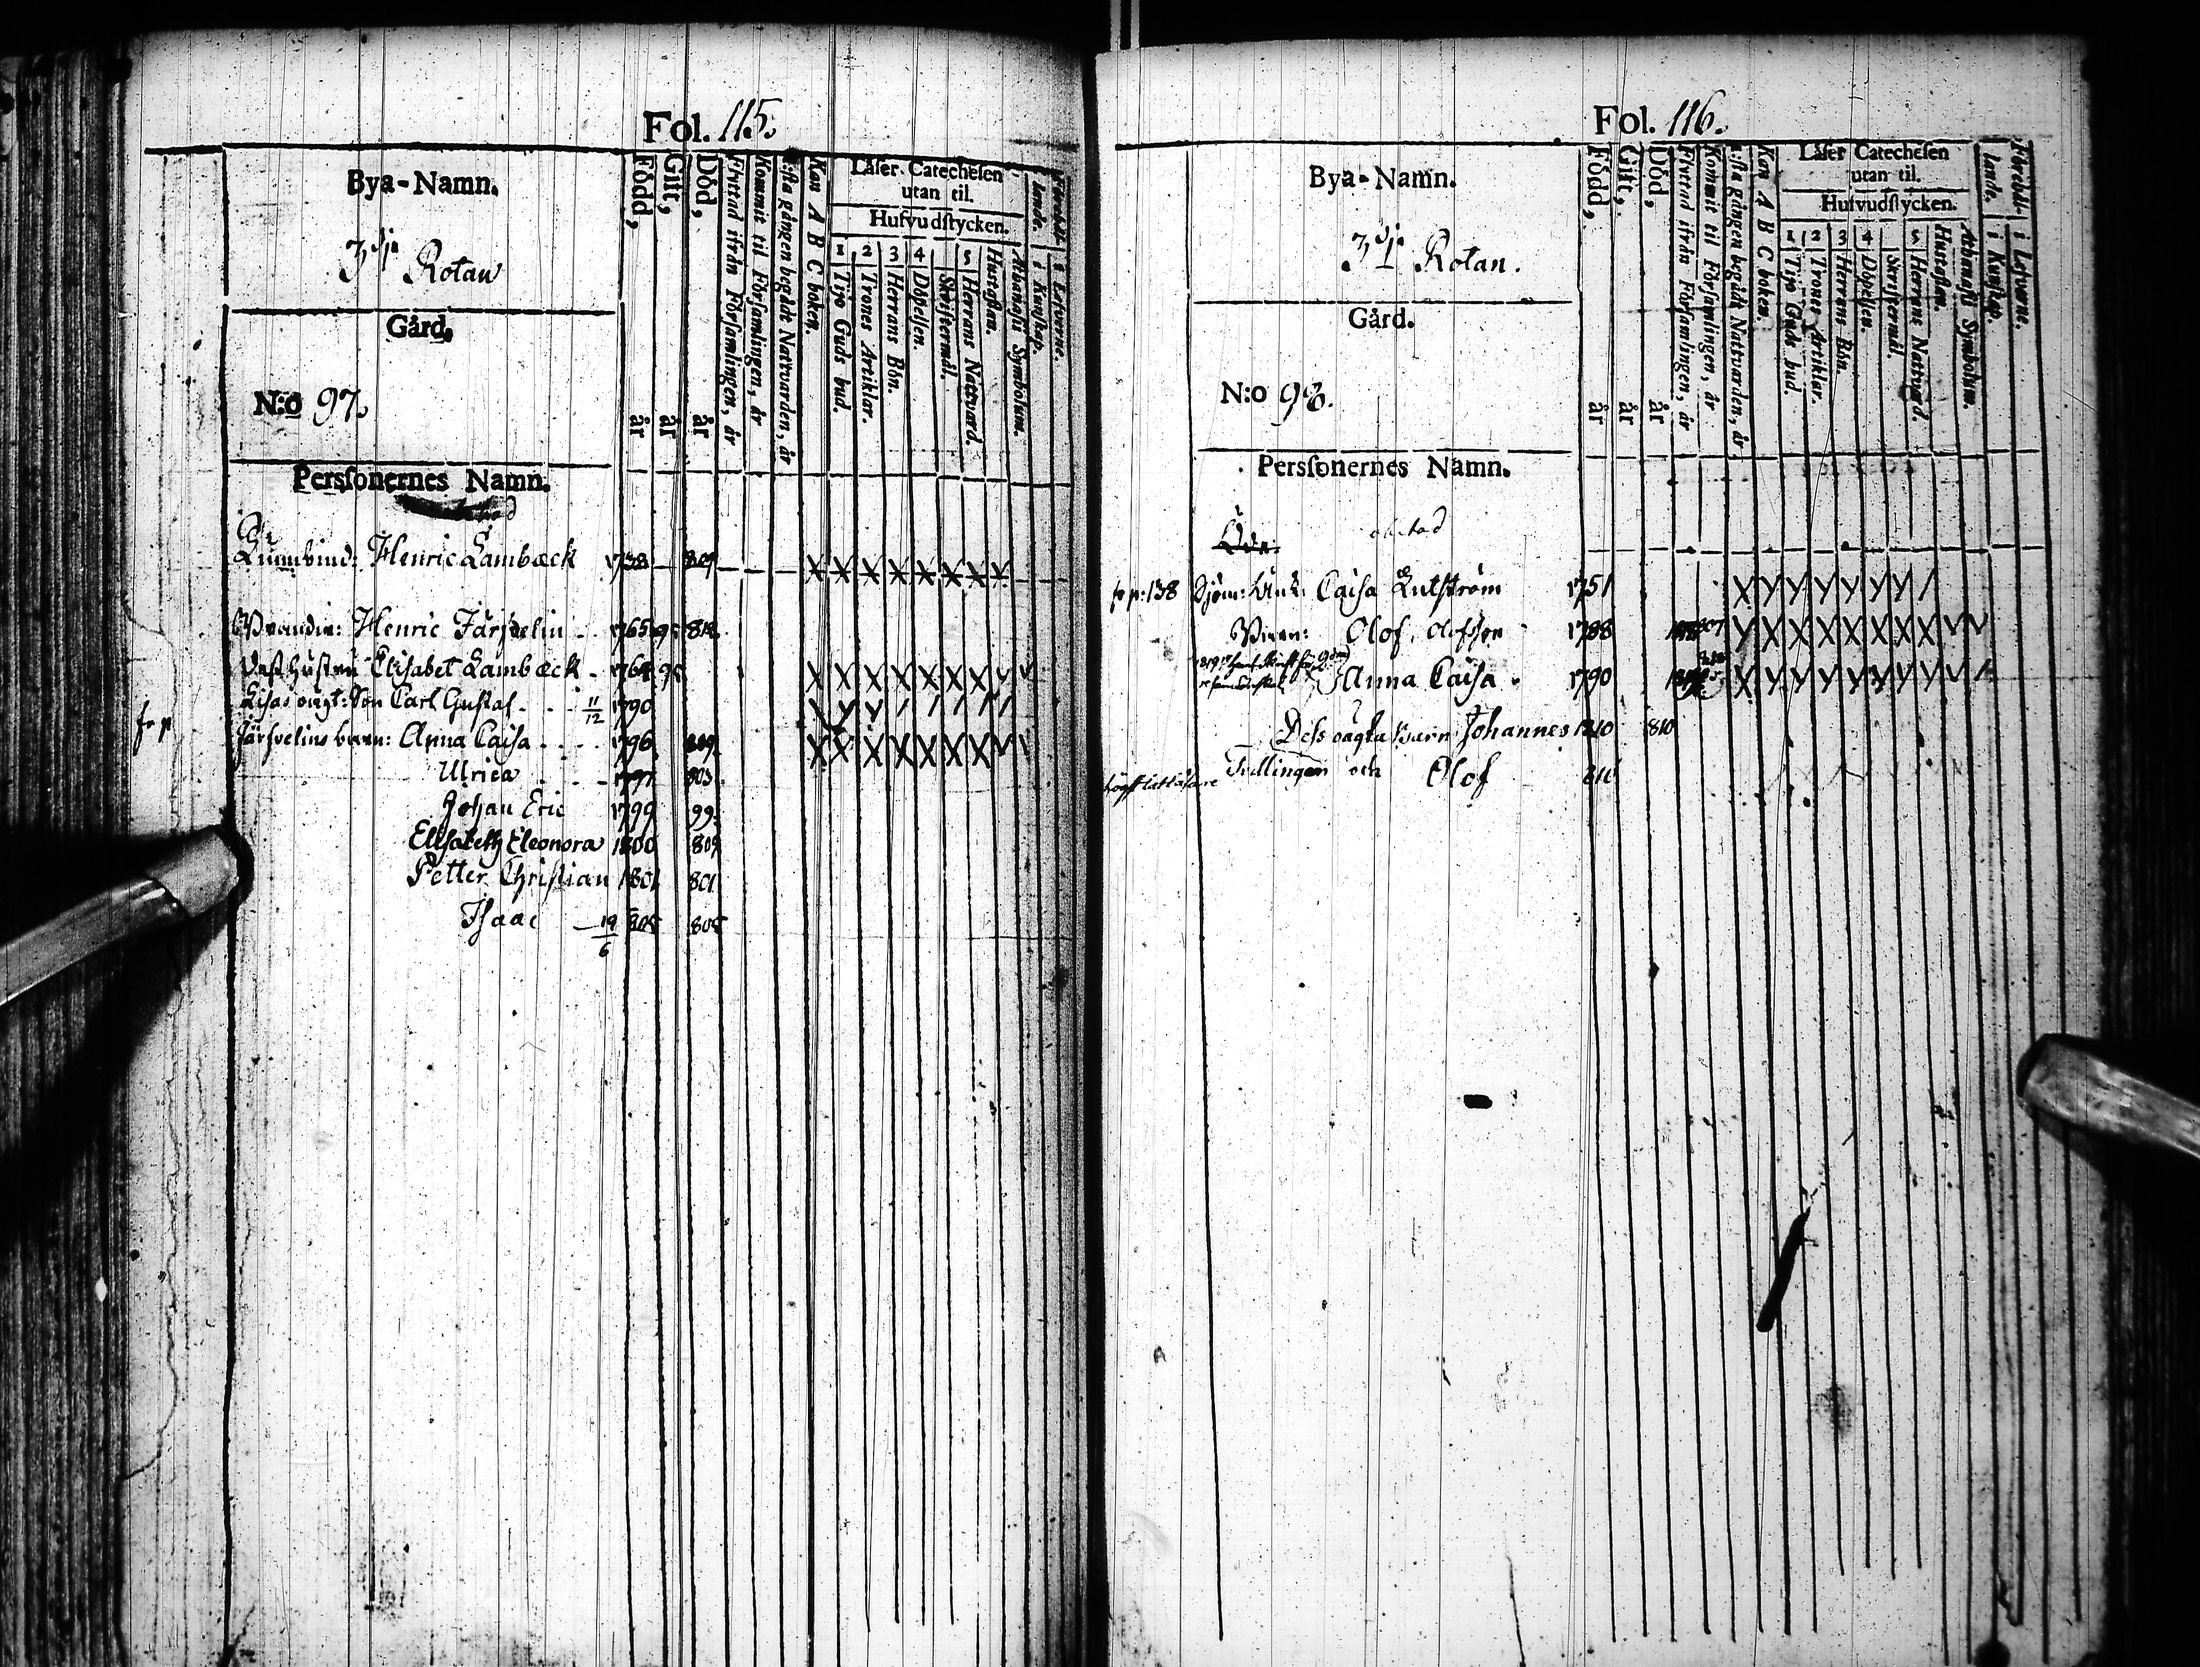 Fol. 115.
Bya-Namn.
3dje Rotan
Gård.
N:o 97.
Persſonernes Namn.
Född, år
Gift, år
Död, år
Flyttad ifrån Förſamlingen, år
Kommit til Förſamlingen, år
1:ſta gången begådt Nattvarden, år
Kan A B C boken.
Låſer Catecheſen
utan til.
Hufvudſtycken.
1 Tijo Guds bud.
2 Trones Artiklar.
3 Herrans Bön.
4 Döpelſen.
Skriftermål.
5 Herrans Nattvard.
Huſtaflan.
Athanaſii Symbolum.
Förehållande.
i Kunſkap.
i Lefverne.
Henric Lambæck 1738 809
Henric Järfvelin 1765 95 812
Hustru Elisabet Lambæck 1764 95
Lisas oägt: Son Carl Gustaf 11/12 1790
fr p Järfvelins barn: Anna Caisa 1796 809
Ulrica 1797 803
Johan Eric 1799 99
Elisabeth Eleonora 1800 809
Petter Christian 1801 801
Isaac 19/6 805 805
Fol. 116.
Bya-Namn.
3dje Rotan.
Gård.
N:o 98.
Persſonernes Namn.
Född, år
Gift, år
Död, år
Flyttad ifrån Förſamlingen, år
Kommit til Förſamlingen, år
1:ſta gången begådt Nattvarden, år
Kan A B C boken.
Låſer Catecheſen
utan til.
Hufvudſtycken.
1 Tijo Guds bud.
2 Trones Artiklar.
3 Herrans Bön.
4 Döpelſen.
Skriftermål.
5 Herrans Nattvard.
Huſtaflan.
Athanaſii Symbolum.
Förehållande.
i Kunſkap.
i Lefverne.
Öde.
fr p: 138 Sjöm: Enk: Caisa Lutström 1751
Olof Olofsson 1788
Anna Caisa 1790
Dess oägta Barn Johannes 1810 810
Tvillingar och Olof 810